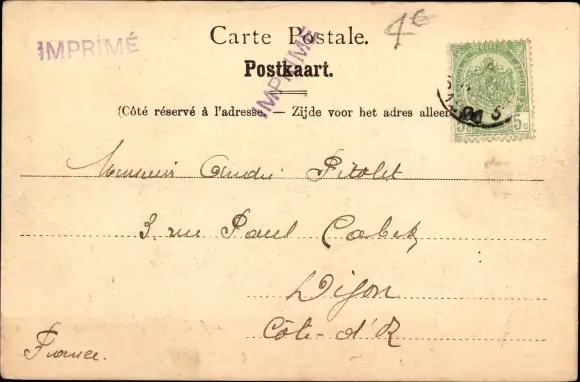 IMPRIMÉ
IMPRIMÉ
4€
Carte Postale.
Postkaart.
(Côté réservé à l'adresse. — Zijde voor het adres alleen
5c 5c
Monsieur André Pitolet
3. rue Paul Cabet
Dijon
Côte-d'Or
France.